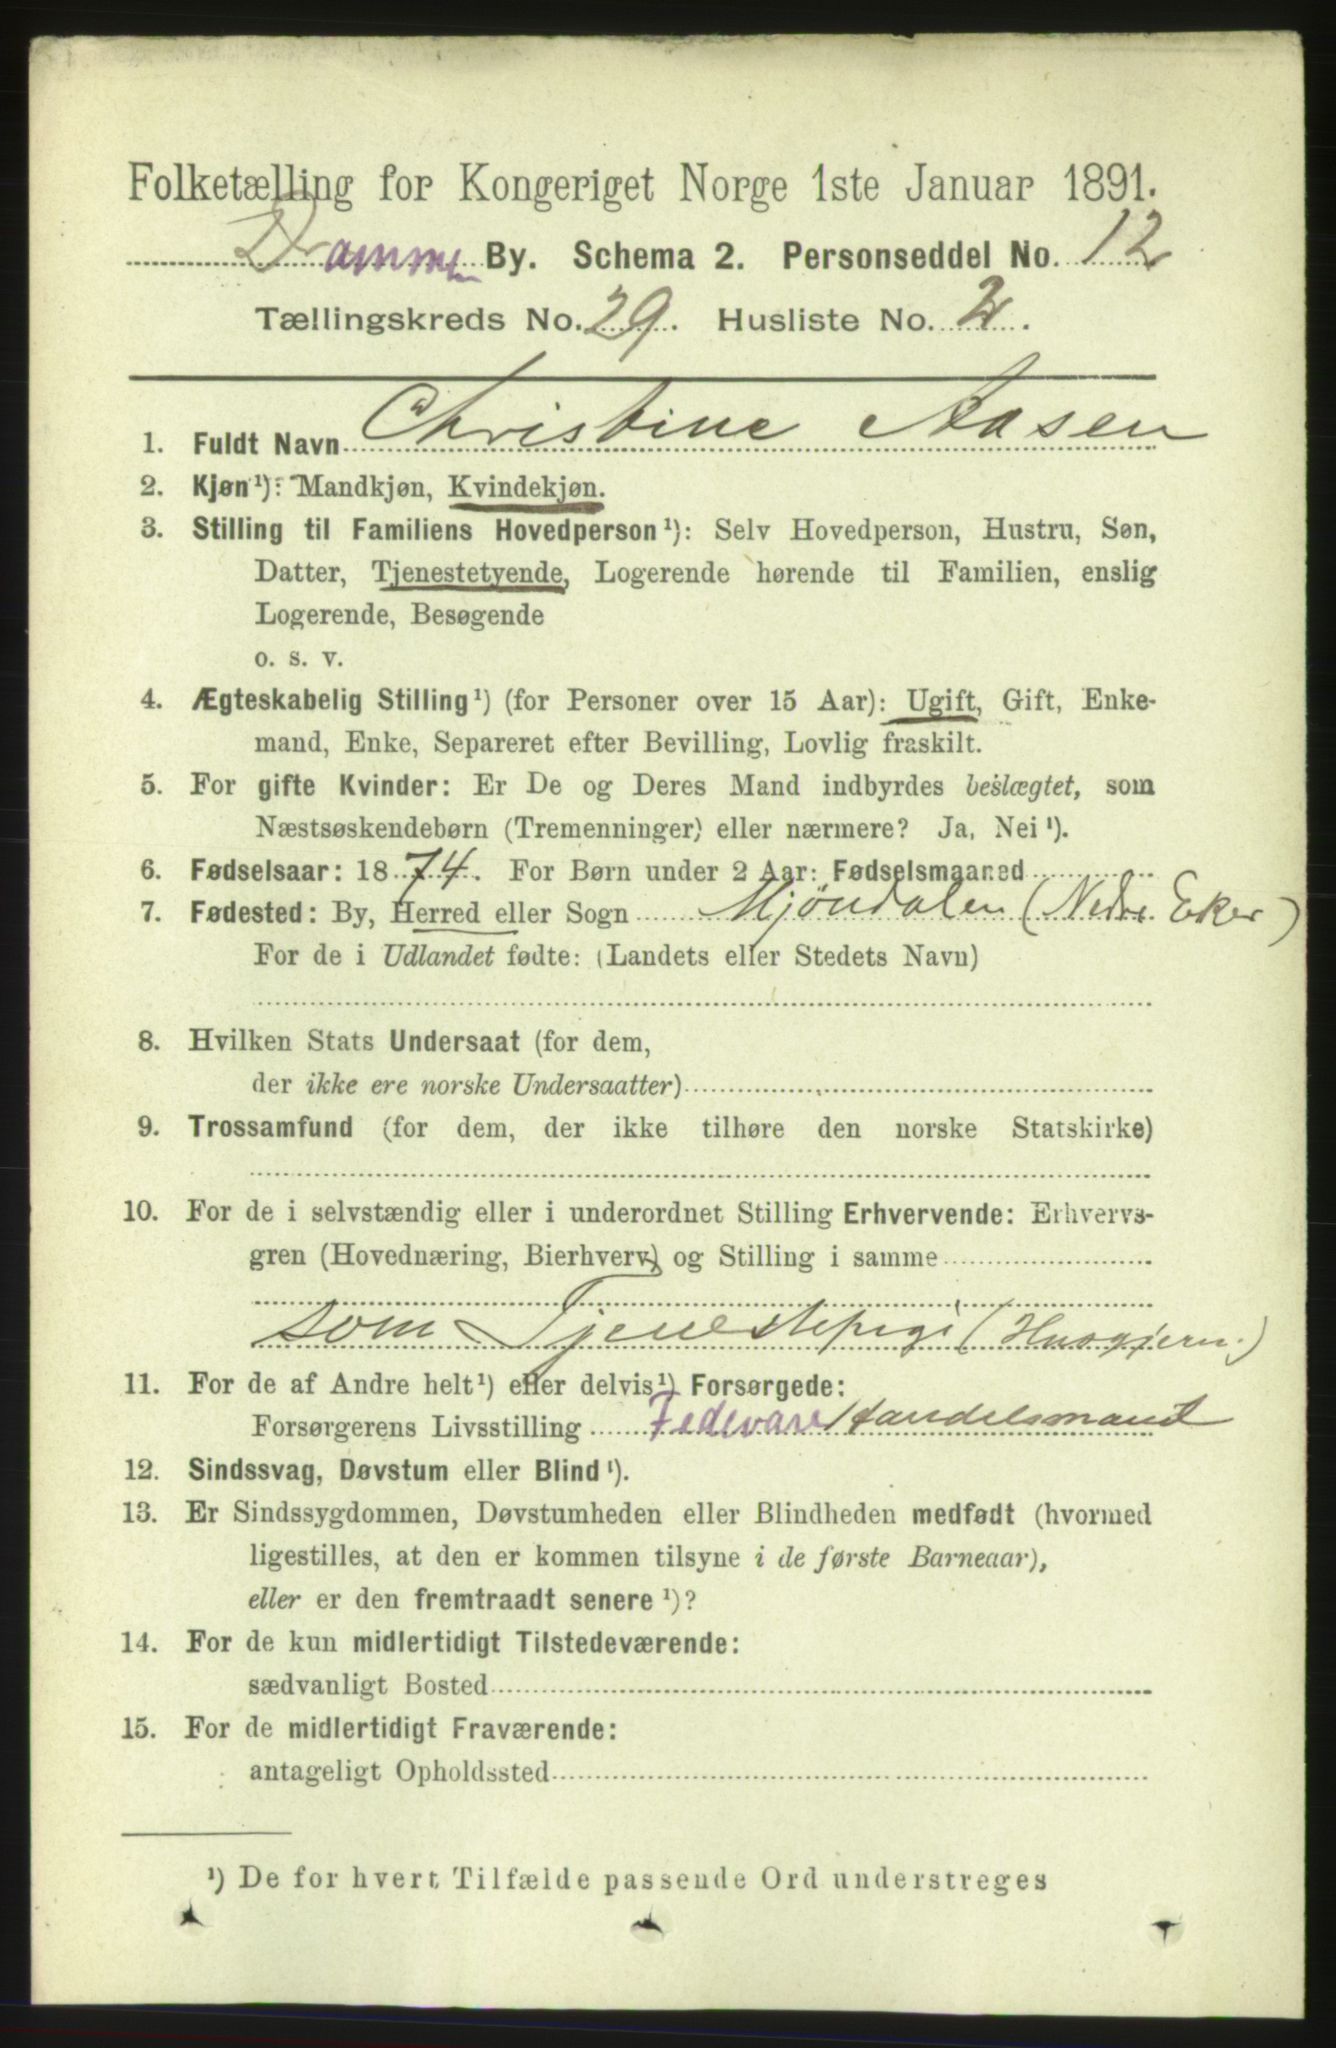 Folketælling for Kongeriget Norge 1ste Januar 1891.
Drammen By. Schema 2. Personseddel No. 12
Tællingskreds No. 29. Husliste No. 2.
1. Fuldt Navn Christine Aasen
2. Kjøn¹): Mandkjøn, Kvindekjøn.
3. Stilling til Familiens Hovedperson¹): Selv Hovedperson, Hustru, Søn,
Datter, Tjenestetyende, Logerende hørende til Familien, enslig
Logerende, Besøgende
o. s. v.
4. Ægteskabelig Stilling¹) (for Personer over 15 Aar): Ugift, Gift, Enke-
mand, Enke, Separeret efter Bevilling, Lovlig fraskilt.
5. For gifte Kvinder: Er De og Deres Mand indbyrdes beslægtet, som
Næstsøskendebørn (Tremenninger) eller nærmere? Ja, Nei¹).
6. Fødselsaar: 1874. For Børn under 2 Aar: Fødselsmaaned
7. Fødested: By, Herred eller Sogn Mjöndalen (Nedre Eker)
For de i Udlandet fødte: (Landets eller Stedets Navn)
8. Hvilken Stats Undersaat (for dem,
der ikke ere norske Undersaatter)
9. Trossamfund (for dem, der ikke tilhøre den norske Statskirke)
10. For de i selvstændig eller i underordnet Stilling Erhvervende: Erhvervs-
gren (Hovednæring, Bierhverv) og Stilling i samme
som Tjenestepige (Husgjern.)
11. For de af Andre helt¹) eller delvis¹) Forsørgede:
Forsørgerens Livsstilling Fedevare Handelsmand
12. Sindssvag, Døvstum eller Blind¹).
13. Er Sindssygdommen, Døvstumheden eller Blindheden medfødt (hvormed
ligestilles, at den er kommen tilsyne i de første Barneaar),
eller er den fremtraadt senere¹)?
14. For de kun midlertidigt Tilstedeværende:
sædvanligt Bosted
15. For de midlertidigt Fraværende:
antageligt Opholdssted
¹) De for hvert Tilfælde passende Ord understreges